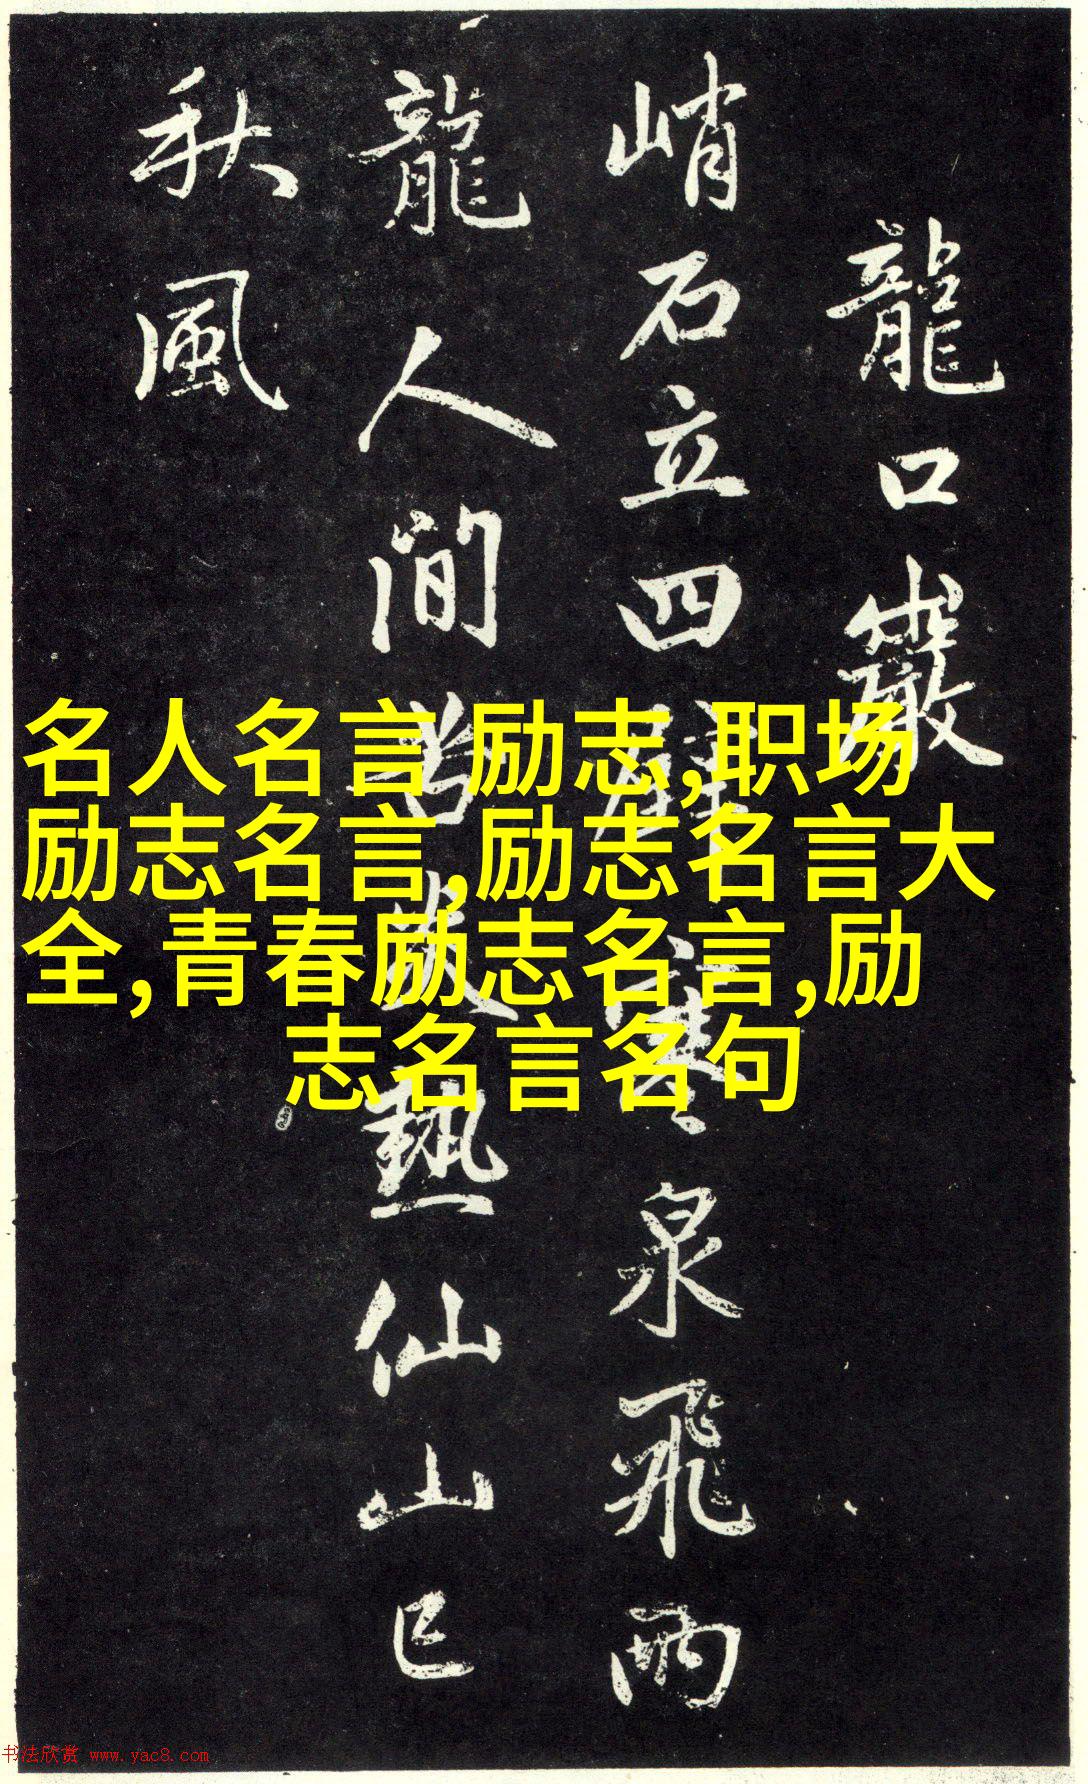 龍口巖
峭石立四壁寒泉飛兩
龍人間苦炎熱仙山已
秋風
名人名言 励志,职场
励志名言,励志名言大
全,青春励志名言,励
志名言名句
书法欣赏 www.yac8.com